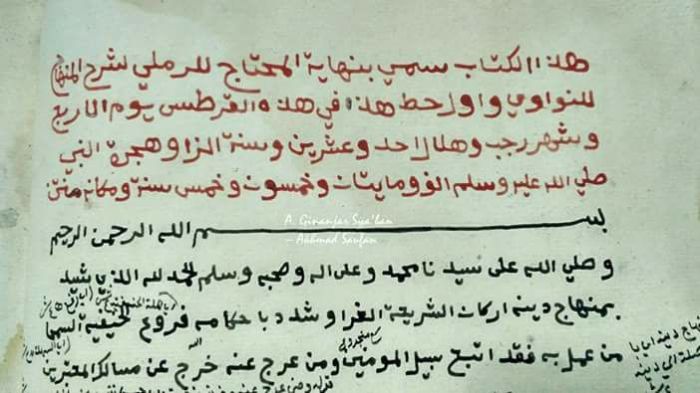 هذا الكتاب سمي بنهاية المحتاج للرملي شرح المنهاج
للنواوي واول حط هذا في هذه القرطس يوم الاربع
وشهر رجب وهلال احد وعشرين وسنة الزا وهجرة النبي
صلي الله عليه وسلم الف ومايتان وخمسون وخمس سنة ومكانه
A. Ginanjar Sya'ban
– Aahmad Saufan
بسم الله الرحمن الرحيم
وصلي الله على سيدنا محمد وعلى اله وصحبه وسلم الحمد لله الذي شيد
بمنهاج دينه اركان الشريعة الغرا وشدد باحكامه فروع الحنيفية السمحا
من عمل به فقد اتبع سبيل المومنين ومن عرج عنه خرج عن مسالك المعتبرين